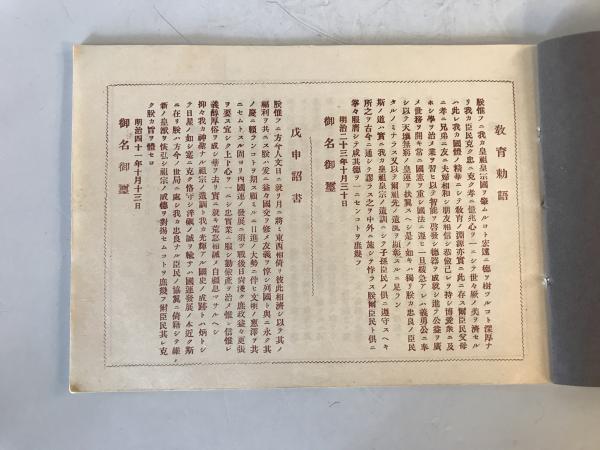 教育勅語
朕惟フニ我カ皇祖皇宗國ヲ肇ムルコト宏遠ニ德ヲ樹ツルコト深厚ナ
リ我カ臣民克ク忠ニ克ク孝ニ億兆心ヲ一ニシテ世々厥ノ美ヲ濟セル
ハ此レ我カ國體ノ精華ニシテ敎育ノ淵源亦實ニ此ニ存ス爾臣民父母
ニ孝ニ兄弟ニ友ニ夫婦相和シ朋友相信シ恭儉己レヲ持シ博愛衆ニ及
ホシ學ヲ修メ業ヲ習ヒ以テ智能ヲ啓發シ德器ヲ成就シ進テ公益ヲ廣
メ世務ヲ開キ常ニ國憲ヲ重シ國法ニ遵ヒ一旦緩急アレハ義勇公ニ奉
シ以テ天壤無窮ノ皇運ヲ扶翼スヘシ是ノ如キハ獨リ朕カ忠良ノ臣民
タルノミナラス又以テ爾祖先ノ遺風ヲ顯彰スルニ足ラン
斯ノ道ハ實ニ我カ皇祖皇宗ノ遺訓ニシテ子孫臣民ノ俱ニ遵守スヘキ
所之ヲ古今ニ通シテ謬ラス之ヲ中外ニ施シテ悖ラス朕爾臣民ト俱ニ
拳々服膺シテ咸其德ヲ一ニセンコトヲ庶幾フ
明治二十三年十月三十日
御名御璽
戊申詔書
朕惟フニ方今人文日ニ就リ月ニ將ミ東西相倚リ彼此相濟シ以テ其ノ
福利ヲ共ニス朕ハ爰ニ益々國交ヲ修メ友義ヲ惇シ列國ト與ニ永ク其
ノ慶ニ賴ランコトヲ期ス顧ミルニ日進ノ大勢ニ伴ヒ文明ノ惠澤ヲ共
ニセムトスル固ヨリ內國運ノ發展ニ須ツ戰後日尙淺ク庶政益々更張
ヲ要ス宜シク上下心ヲ一ニシ忠實業ニ服シ勤儉產ヲ治メ惟レ信惟レ
義醇厚俗ヲ成シ華ヲ去リ實ニ就キ荒怠相誡メ自彊息マサルヘシ
抑々我カ神聖ナル祖宗ノ遺訓ト我カ光輝アル國史ノ成跡トハ炳トシ
テ日星ノ如シ寔ニ克ク恪守シ淬礪ノ誠ヲ輸サハ國運發展ノ本近ク斯
ニ在リ朕ハ方今ノ世局ニ處シ我カ忠良ナル臣民ノ協翼ニ倚藉シテ維
新ノ皇猷ヲ恢弘シ祖宗ノ威德ヲ對揚セムコトヲ庶幾フ爾臣民其レ克
ク朕カ旨ヲ體セヨ
明治四十一年十月十三日
御名御璽